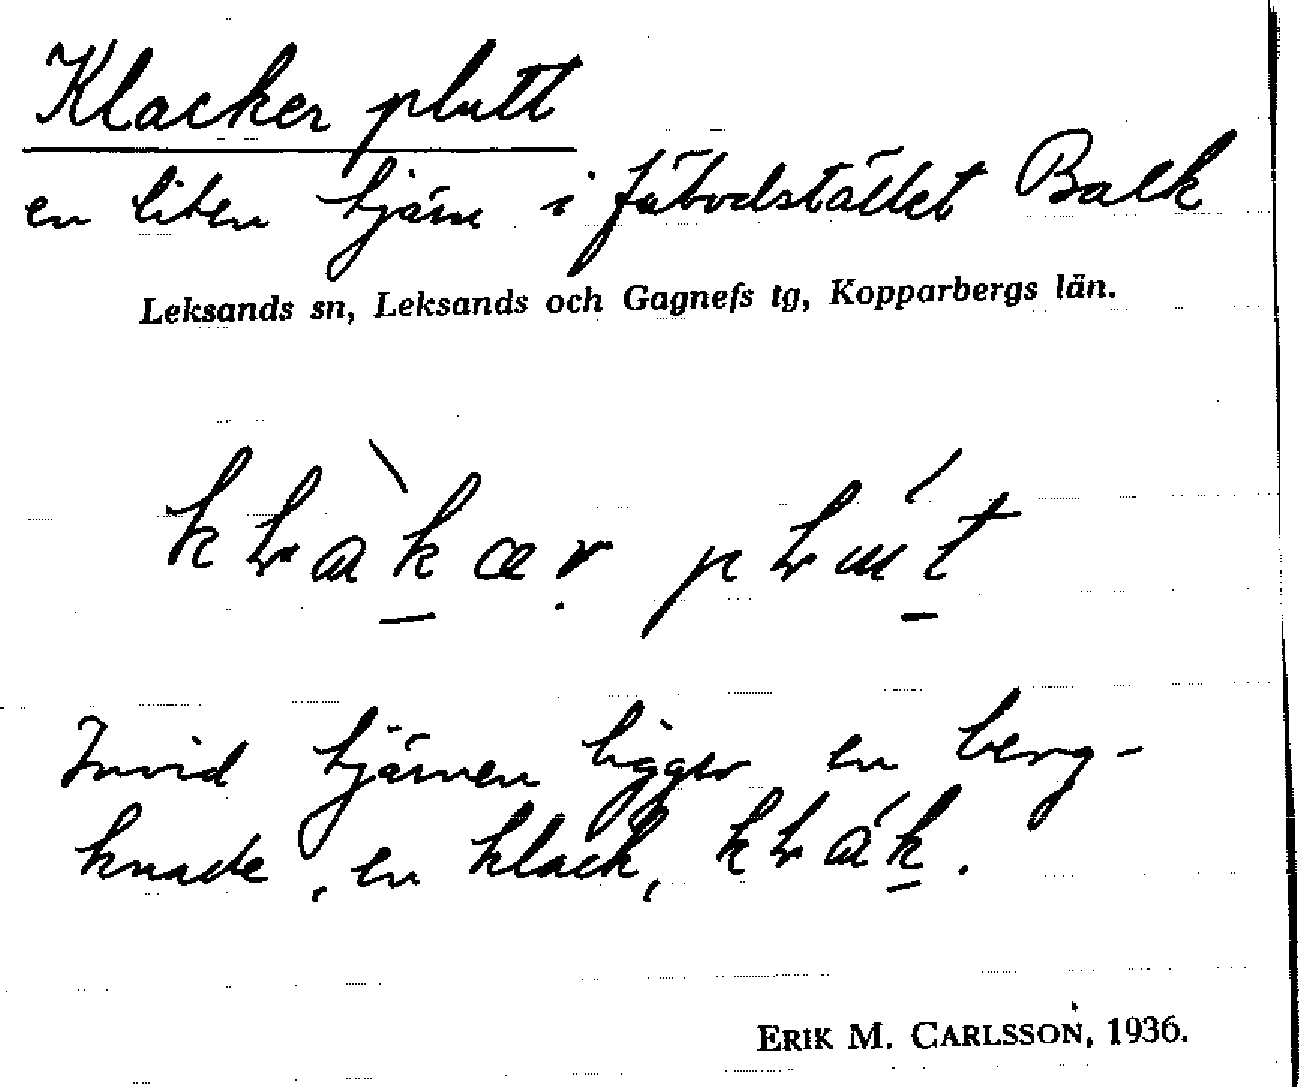 Klacker plutt
en liten tjärn i fäbodstället Balk
Leksands sn, Leksands och Gagnefs tg, Kopparbergs län.
Invid tjärnen ligger en berg-
knade, en klack,
ERIK M. CARLSSON, 1936.